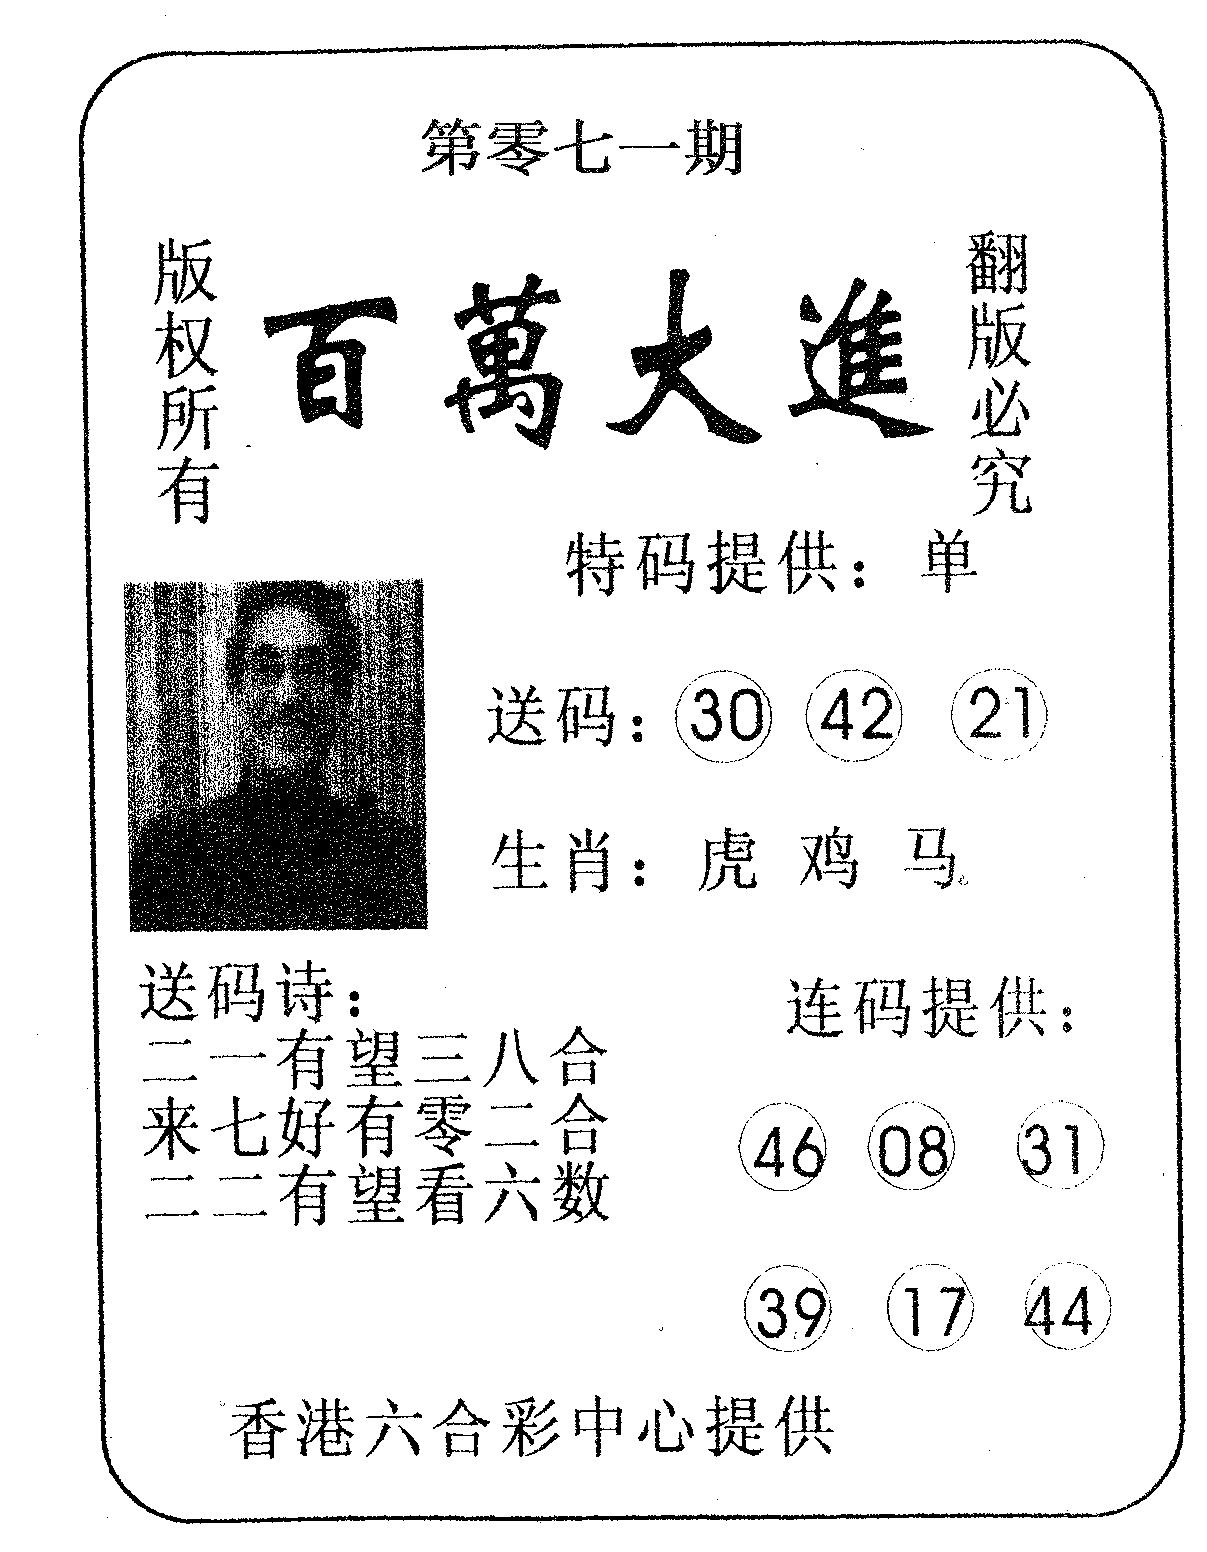 第零七一期
版权所有
百萬大進
翻版必究
特码提供：单
送码：30 42 21
生肖：虎 鸡 马
送码诗：
二一有望三八合
来七好有零二合
二二有望看六数
连码提供：
46 08 31
39 17 44
香港六合彩中心提供